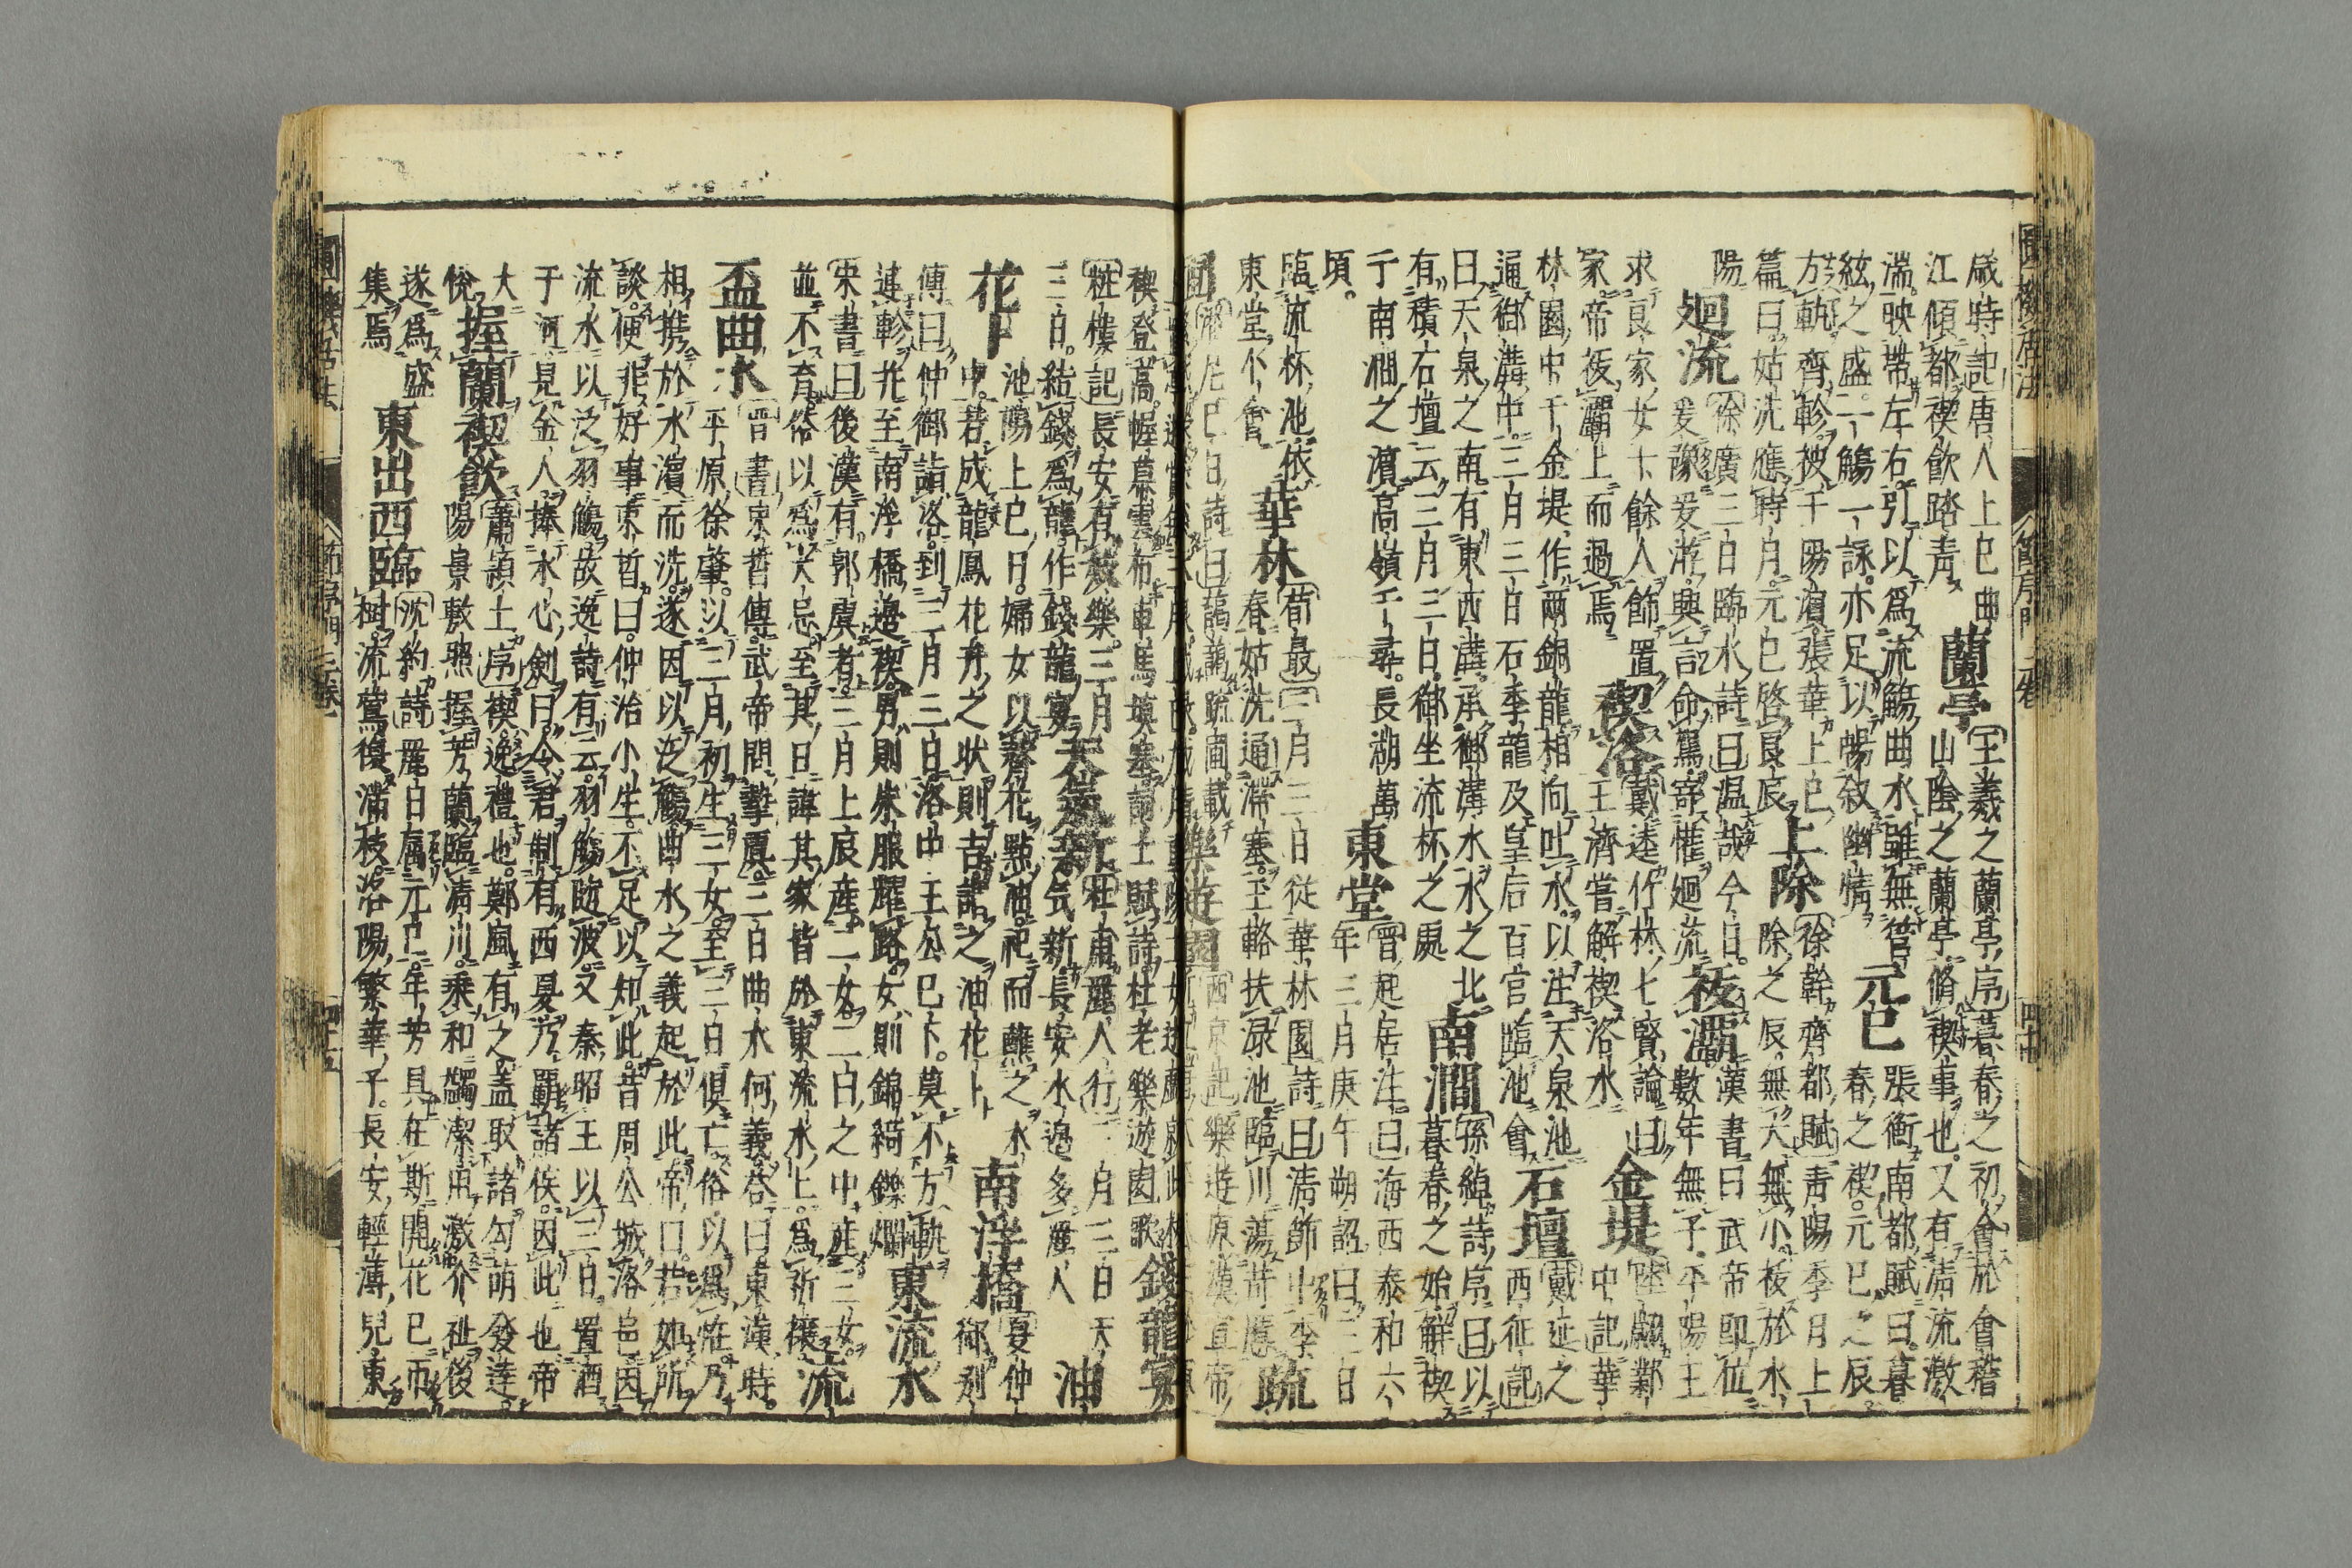 歳時記唐人上巳曲
蘭亭
王羲之蘭亭序暮春之初會於會稽
江傾都禊飲踏青
山陰之蘭亭脩禊事也又有清流激
湍映帶左右引以爲流觴曲水雖無管
絃之盛一觴一詠亦足以暢敘幽情
元巳
張衡南都賦曰暮
春之禊元巳之辰
方軌齊軫祓于陽濱張華上巳
篇曰姑洗應時月元巳啓良辰
上除
徐幹齊都賦青陽季月上
除之辰無大無小祓於水
陽
廻流
徐廣三日臨水詩曰温哉今日
爰豫爰游興言命駕寄懽廻流
祓灞
漢書曰武帝即位
數年無子平陽主
求良家女十餘人飾置
家帝祓灞上而過焉
禊洛
戴逵竹林七賢論曰
王濟嘗解禊洛水
金堤
陸翽鄴
中記華
林園中千金堤作兩銅龍相向吐水以注天泉池
通御溝中三月三日石季龍及皇后百官臨池會
石壇
戴延之
西征記
曰天泉之南有東西溝承御溝水水之北
有積石壇云三月三日御坐流杯之處
南澗
孫綽詩序曰以
暮春之始解禊
于南澗之濱高嶺千尋長湖萬
頃
東堂
晉起居注曰海西泰和六
年三月庚午朔詔曰三日
臨流杯池依
東堂小會
華林
三月三日從華林園詩曰清節中季
春姑洗通滯塞玉輅扶渌池臨川蕩苛慝
疏
樂遊
西京記樂遊原漢宣帝
禊登高幄幕雲布車馬塡塞詞士賦詩杜老樂遊園歌
錢龍宴
粧樓記長安有數樂三月
三日結錢爲龍作錢龍宴
天氣新
杜甫麗人行三月三日天
気新長安水邊多麗人
油
花卜
池陽上巳日婦女以薺花點油祀而蘸之水
中若成龍鳳花卉之状則吉謂之油花卜
南浮橋
夏仲
御别
傳曰仲御詣洛到三月三日洛中王公巳下莫不方軌
連軫尤至南浮橋邊禊男則朱服耀路女則錦綺鑠爛
東流水
宋書曰後漢有郭虞者三月上辰産二女二日之中産三女
並不育俗以爲大忌至其日諱其家皆於東流水上爲祈禳
流
盃曲水
晋書束晳傳武帝問摯虞三日曲水何義答曰東漢時
平原徐肇以三月初生三女至三日俱亡俗以爲恠乃
相携於水濱而洗遂因以泛觴曲水之義起於此帝曰若如所
談便非好事束晳曰仲治小生不足以知此昔周公城洛邑因
流水以泛羽觴故逸詩有云羽觴隨波又秦昭王以三日置酒
于河見金人捧水心劍曰令君制有西夏乃覇諸侯因此也帝
大
悅
握蘭禊飲
蕭頴士序禊逸禮也鄭風有之盖取諸勾萌發達
陽景敷煕握芳蘭臨清川乗和蠲潔用激介祉後
遂爲盛
集焉
東出西臨
沈約詩麗日屬元巳年芳具在斯開花巳
樹流鶯復滿枝洛陽繁華子長安輕薄兒東